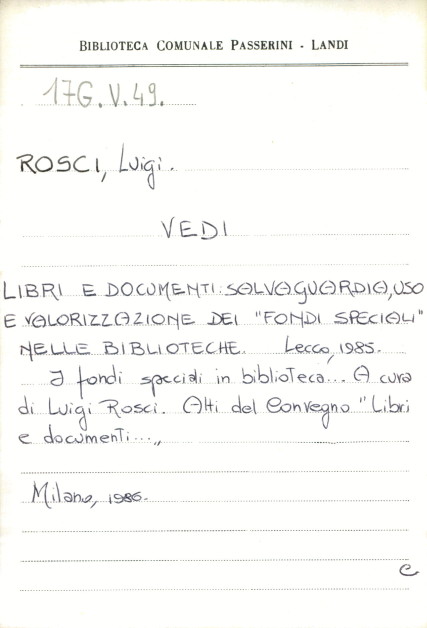 BIBLIOTECA COMUNALE PASSERINI - LANDI
17G.V.49.
ROSCI, Luigi.
VEDI
LIBRI E DOCUMENTI: SALVAGUARDIA, USO
E VALORIZZAZIONE DEI "FONDI SPECIALI"
NELLE BIBLIOTECHE. Lecco, 1985.
I fondi speciali in biblioteca... A cura
di Luigi Rosci. Atti del Convegno "Libri
e documenti...„
Milano, 1986.
C